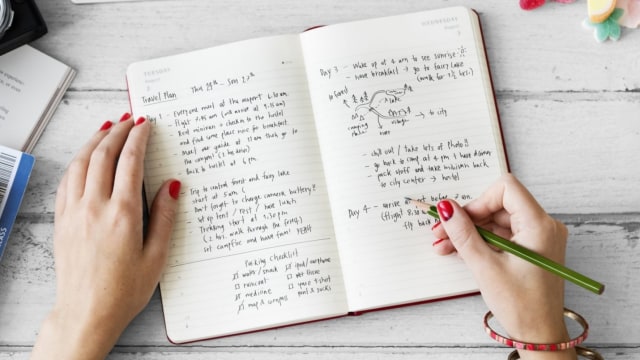 TUESDAY
August
Travel Plan
Thu 24th - Sun 27th
Day 1 - Everyone meet at the airport 6.10 am
(Flight 8.35 am and arrive at 9.55 am)
- Rent minivan & check in to the hotel
and find some place nice for breakfast
- Meet our guide at 11 am then go to
the canyon! (3 hrs drive)
- Back to hotel at 6 pm
- Trip to central forest and fairy lake
start at 5 am
- Don't forget to charge camera battery!!
- Set up tent / rest / have lunch
- Trekking start at 1.30 pm
(2 hrs walk through the forest)
- Set campfire and have fun!
Packing Checklist
water / snack
raincoat
medicine
map & compass
ipod / earphone
wet tissue
spare t-shirt
pant & socks
WEDNESDAY
August
Day 3 - Wake up at 4 am to see sunrise
- have breakfast → go to fairy lake
(walk for 2 ½ hrs)
forest
lake
camping
village
→ to city
- chill out / take lots of photo!!
- go back to camp at 4 pm & have dinner
- pack stuff and take minivan back
to city center → hotel
Day 4 - arrive before
(flight
fly back
CLASS